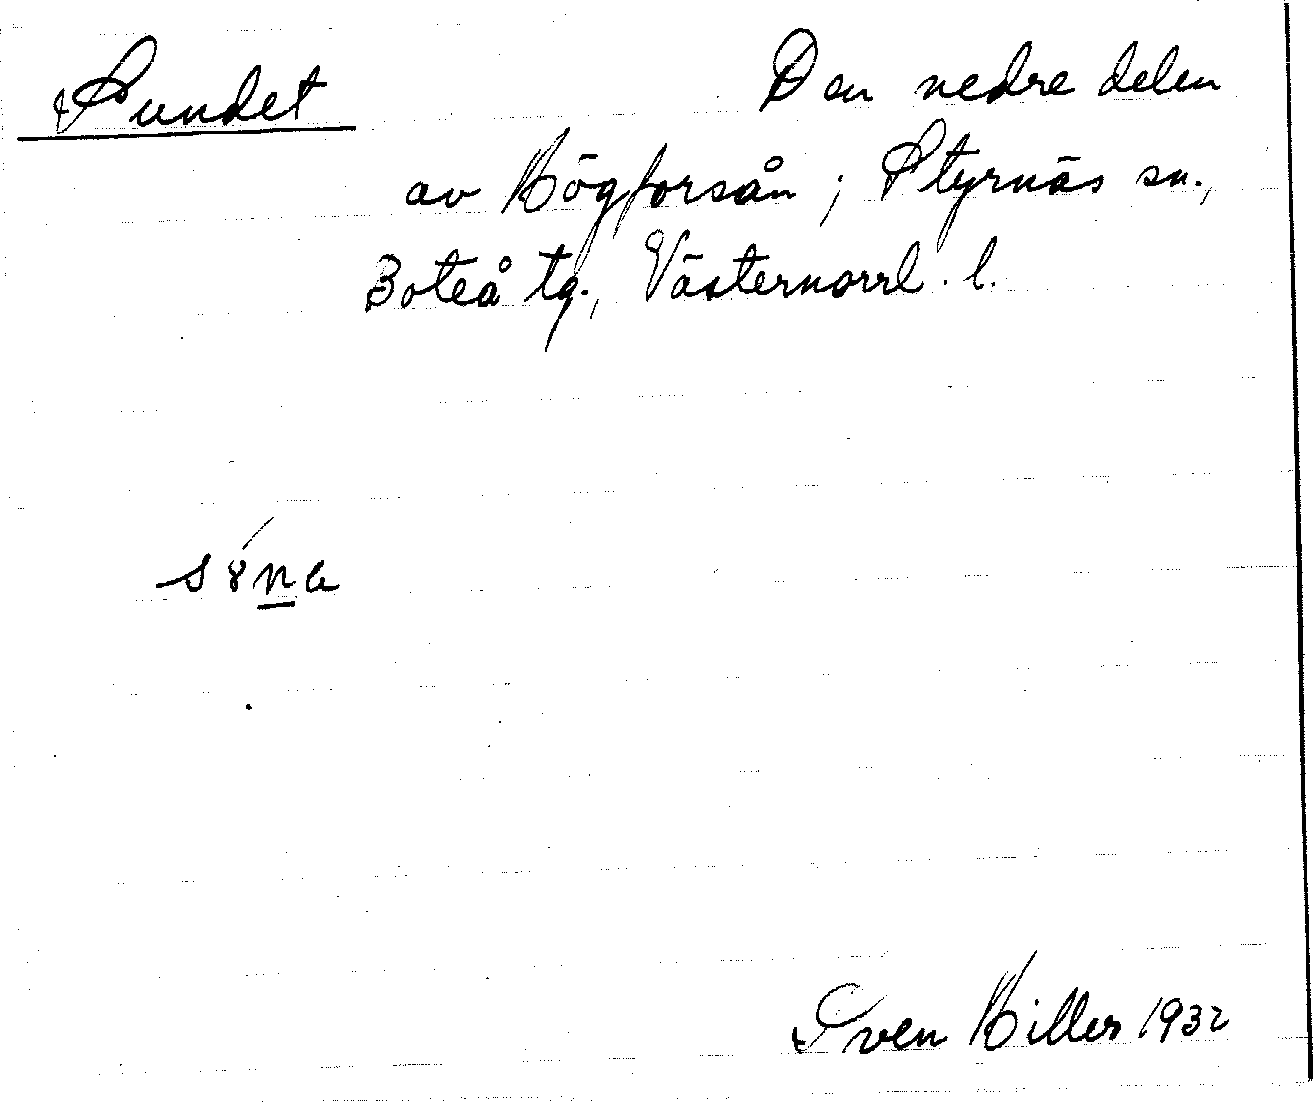 Sundet
Den nedre delen
av Högforsån; Styrnäs sn.,
Boteå tg., Västernorrl. l.
Sven Hiller 1932